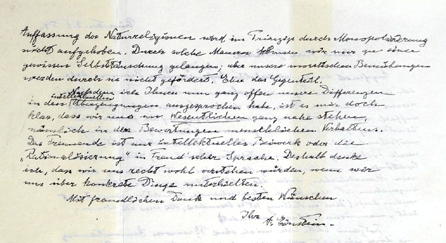 Auffassung des Naturreligiösen wird im Prinzip durch Monopolisierung
nicht aufgehoben. Durch solche Mauern können wir nur zu einer
gewissen Selbsttäuschung gelangen; aber unsere moralischen Bemühungen
werden durch sie nicht gefördert. Eher das Gegenteil.
Nachdem ich Ihnen nun ganz offen unsere Differenzen
intellektuellen
in den Überzeugungen ausgesprochen habe, ist es mir doch
klar, dass wir uns im Wesentlichen ganz nahe stehen,
nämlich in den Bewertungen menschlichen Verhaltens.
Das Trennende ist nur intellektuelles Beiwerk oder die
"Rationalisierung" in Freud'scher Sprache. Deshalb denke
ich, dass wir uns recht wohl verstehen würden, wenn wir
uns über konkrete Dinge unterhielten.
Mit freundlichem Dank und besten Wünschen
Ihr
A. Einstein.